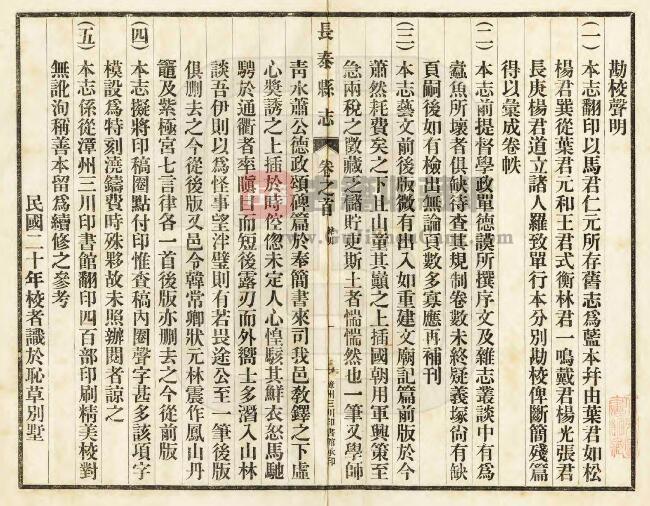 勘校聲明
（一）本志翻印以馬君仁元所存舊志爲藍本幷由葉君如松
楊君巽從葉君元和王君式衡林君一鳴戴君楊光張君
長庚楊君道立諸人羅致單行本分別勘校俾斷簡殘篇
得以彙成卷帙
（二）本志前提督學政單德謨所撰序文及雜志叢談中有爲
蠹魚所壞者俱缺待查其規制卷數未終疑義塚尙有缺
頁嗣後如有檢出無論頁數多寡應再補刊
（三）本志藝文前後版微有出入如重建文廟記篇前版於今
蕭然耗費矣之下山山童其巔之上插國朝用軍興策至
急兩稅之徵藏之儲貯吏斯土者惴惴然也一筆又學師
長泰縣志
卷之首
漳州三川印書館承印
靑水蕭公德政頌碑篇於奉簡書來司我邑敎鐸之下虛
心獎誘之上插於時倥偬未定人心惶駭其鮮衣怒馬馳
騁於通衢者率瞋目而短後露刃而外嚮士多潛入山林
談吾伊則以爲怪事望泮璧則有若畏途公至一筆後版
俱删去之今從後版又邑令韓常卿狀元林震作鳳山丹
竈及紫極宮七言律各一首後版亦删去之今從前版
（四）本志擬將印稿圈點付印惟查稿內圈聲字甚多該項字
模設爲特刻澆鑄費時殊夥故未照辦閱者諒之
（五）本志係從漳州三川印書館翻印四百部印刷精美校對
無訛洵稱善本留爲續修之參考
民國二十年校者識於恥草別墅